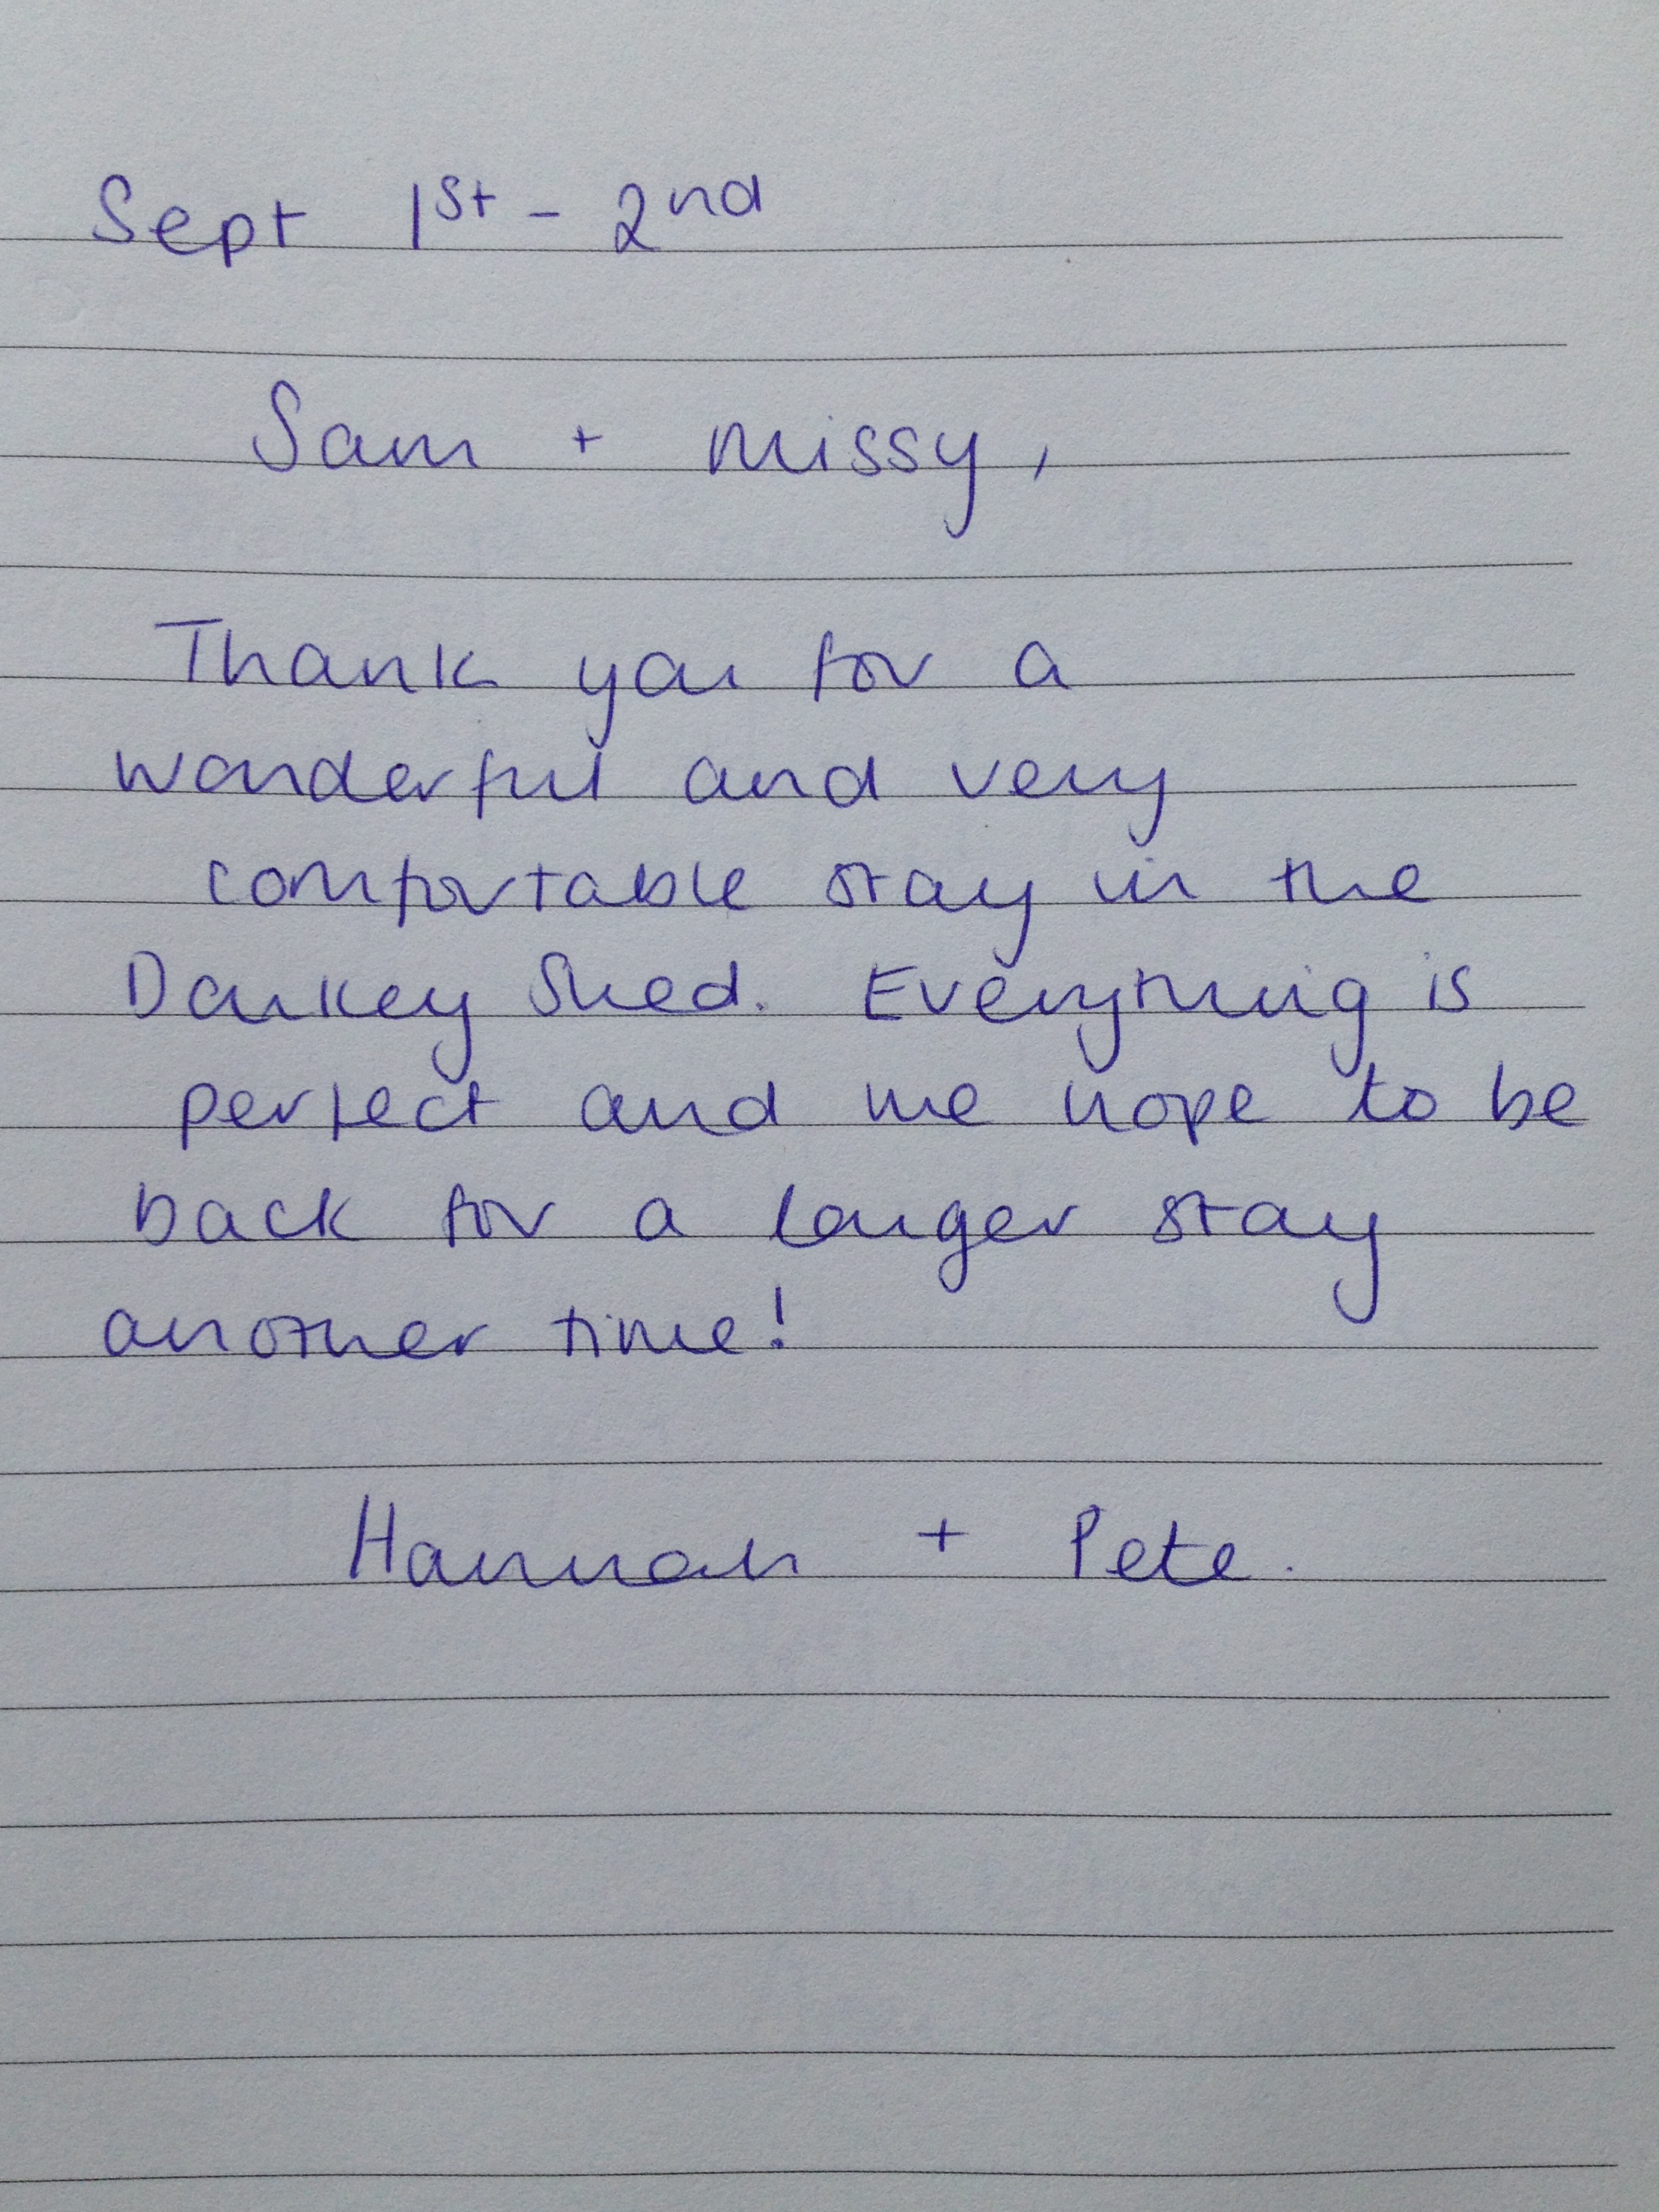 Sept 1st - 2nd
Sam + missy,
Thank you for a
wonderful and very
comfortable stay in the
Donkey Shed. Everything is
perfect and we hope to be
back for a longer stay
another time!
Hannah + Pete.